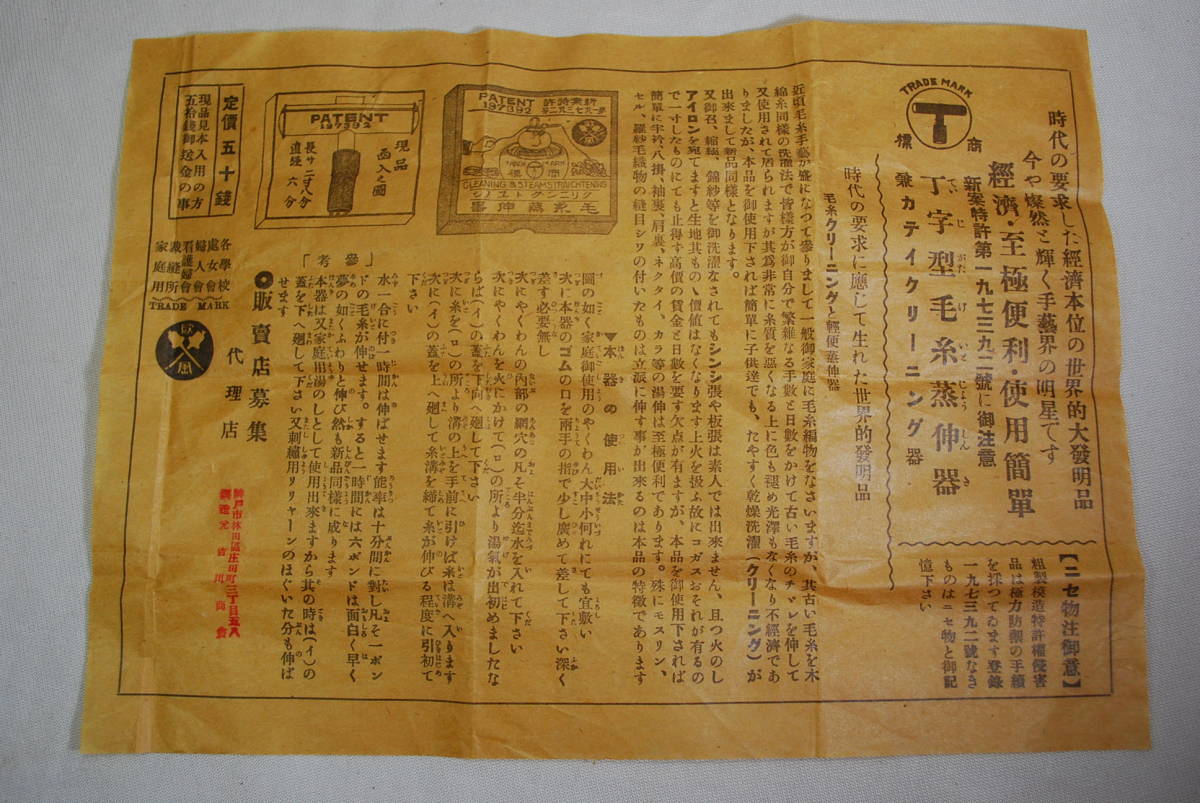 時代の要求した經濟本位の世界的大發明品
今や燦然と輝く手藝界の明星です
經濟・至極便利・使用簡單
新案特許第一九七三九二號に御注意
丁字型毛糸蒸伸器
てい じ がた け いと じょう しん き
兼カテイクリーニング器
TRADE MARK
T
商標
【ニセ物注御意】
粗製模造特許權侵害
品は極力防禦の手續
を採つてゐます登錄
一九七三九二號なき
ものはニセ物と御記
憶下さい
時代の要求に應じて生れた世界的發明品
毛糸クリーニングと輕便蒸伸器
近頃毛糸手藝が盛になつて參りまして一般御家庭に毛糸編物をなさいますが、其古い毛糸を木
綿糸同樣の洗濯法で皆樣方が御自分で繁雜なる手數と日數をかけて古い毛糸のチヾレを伸して
又使用されて居られますが其爲非常に糸質を惡くなる上に色も褪め光澤もなくなり不經濟であ
りましたが、本品を御使用下されば簡單に子供達でも、たやすく乾燥洗濯(クリーニング)が
出來まして新品同樣となります。
又御召、縮緬、錦紗等を御洗濯なされてもシンシ張や板張は素人では出來ません、且つ火のし
アイロンを宛てますと生地其もの丶價値はなくなります上火を扱ふ故にコガスおそれが有るの
で一寸したものにても止得ず高價の賃金と日數を要す欠点が有ますが、本品を御使用下されば
簡單に半衿、八掛、袖裏、肩裏、ネクタイ、カラ等の湯伸は至極便利であります。殊にモスリン、
セル、羅紗毛織物の縫目シワの付いたものは立派に伸す事が出來るのは本品の特徴であります
▼本器の使用法
圖の如く家庭御使用のやくわん大中小何れにても宜敷い
次に本器のゴムの口を兩手の指で少し廣めて差して下さい深く
差す必要無し
次にやくわんの內部の網穴の凡そ半分迄水を入れて下さい
次にやくわんを火にかけて(ロ)の所より湯氣が出初めましたな
らば(イ)の蓋を下向へ廻して下さい
次に糸を(ロ)の所より溝の上を手前に引けば糸は溝へ入ります
次に(イ)の蓋を上へ廻して糸溝を締て糸が伸びる程度に引初て
下さい
「參考」
水一合に付一時間は伸ばせます能率は十分間に對し凡そ一ポン
ドの毛糸が伸せます。すると一時間には六ポンドは面白く早く
夢の如くふわりと伸び然も新品同樣に成ります
本器は又家庭用湯のしとして使用出來ますから其の時は(イ)の
蓋を下へ廻して下さい又刺繡用リリヤーンのほぐいた分も伸ば
せます
新案特許
第一九七三九二号
PATENT
197392
TRADE MARK
商標
CLEANING & STEAMSTRAIGHTENING
クリニングトユノシ
毛糸蒸伸器
PATENT
197392
現品
函入之圖
長サ二寸八分
直經 六分
定價五十錢
現品見本入用の方
五拾錢御送金の事
各學校
處女會
婦人會
看護婦會
裁縫所
家庭用
TRADE MARK
◉販賣店募集
代理店
神戸市林田區庄田町三丁目五八
製造元 吉川商會